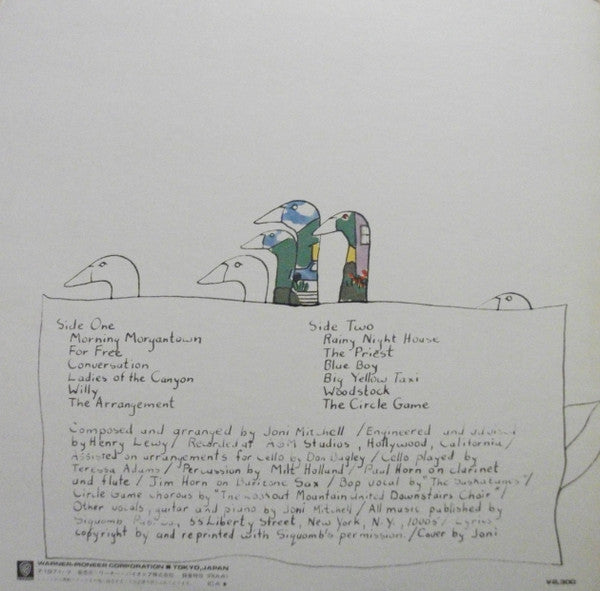 Side One
Morning Morgantown
For Free
Conversation
Ladies of the Canyon
Willy
The Arrangement
Side Two
Rainy Night House
The Priest
Blue Boy
Big Yellow Taxi
Woodstock
The Circle Game
Composed and arranged by Joni Mitchell / Engineered and advised
by Henry Lewy / Recorded at A&M Studios, Hollywood, California /
Assisted on arrangements for cello by Don Bagley / Cello played by
Teressa Adams / Percussion by Milt Holland / Paul Horn on clarinet
and flute / Jim Horn on Baritone Sax / Bop vocal by "The Saskatunes" /
Circle Game chorous by "The Lookout Mountain United Downstairs Choir" /
Other vocals, guitar and piano by Joni Mitchell / All music published by
Siquomb, 55 Liberty Street, New York, N.Y., 10005 / Lyrics
copyright by and reprinted with Siquomb's permission. / Cover by Joni
WARNER-PIONEER CORPORATION ■ TOKYO, JAPAN
¥2,300